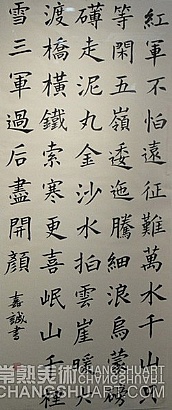 紅軍不怕遠征難萬水千山只
等閑五嶺逶迤騰細浪烏蒙磅
礴走泥丸金沙水拍雲崖暖大
渡橋橫鐵索寒更喜岷山千種
雪三軍過后盡開顏
嘉誠書
常熟美術
CHANGSHUART.COM